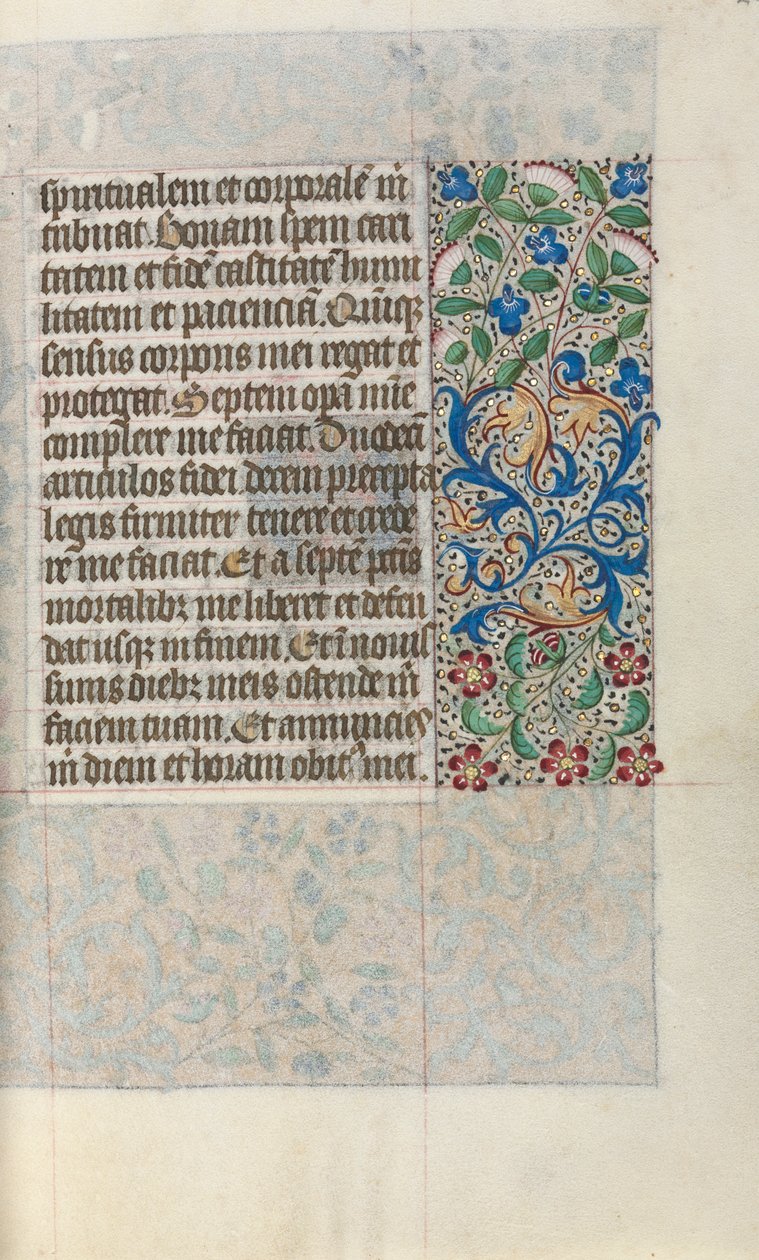 spiritualem et corporalē m̄
tribuat. Bonam spem cari
tatem et fidē castitatē humi
litatem et pacienciā. Quīqꝫ
sensus corporis mei regat et
protegat. Septem opa mīe
complere me faciat. Duodeci
articulos fidei decem precepta
legis firmiter tenere et crede
re me faciat. Et a septē pctis
mortalibꝫ me liberet et defen
dat usqꝫ in finem. Et ī novis
simis diebꝫ meis ostende m̄
faciem tuam. Et annuncies
m̄ diem et horam obitꝰ mei.